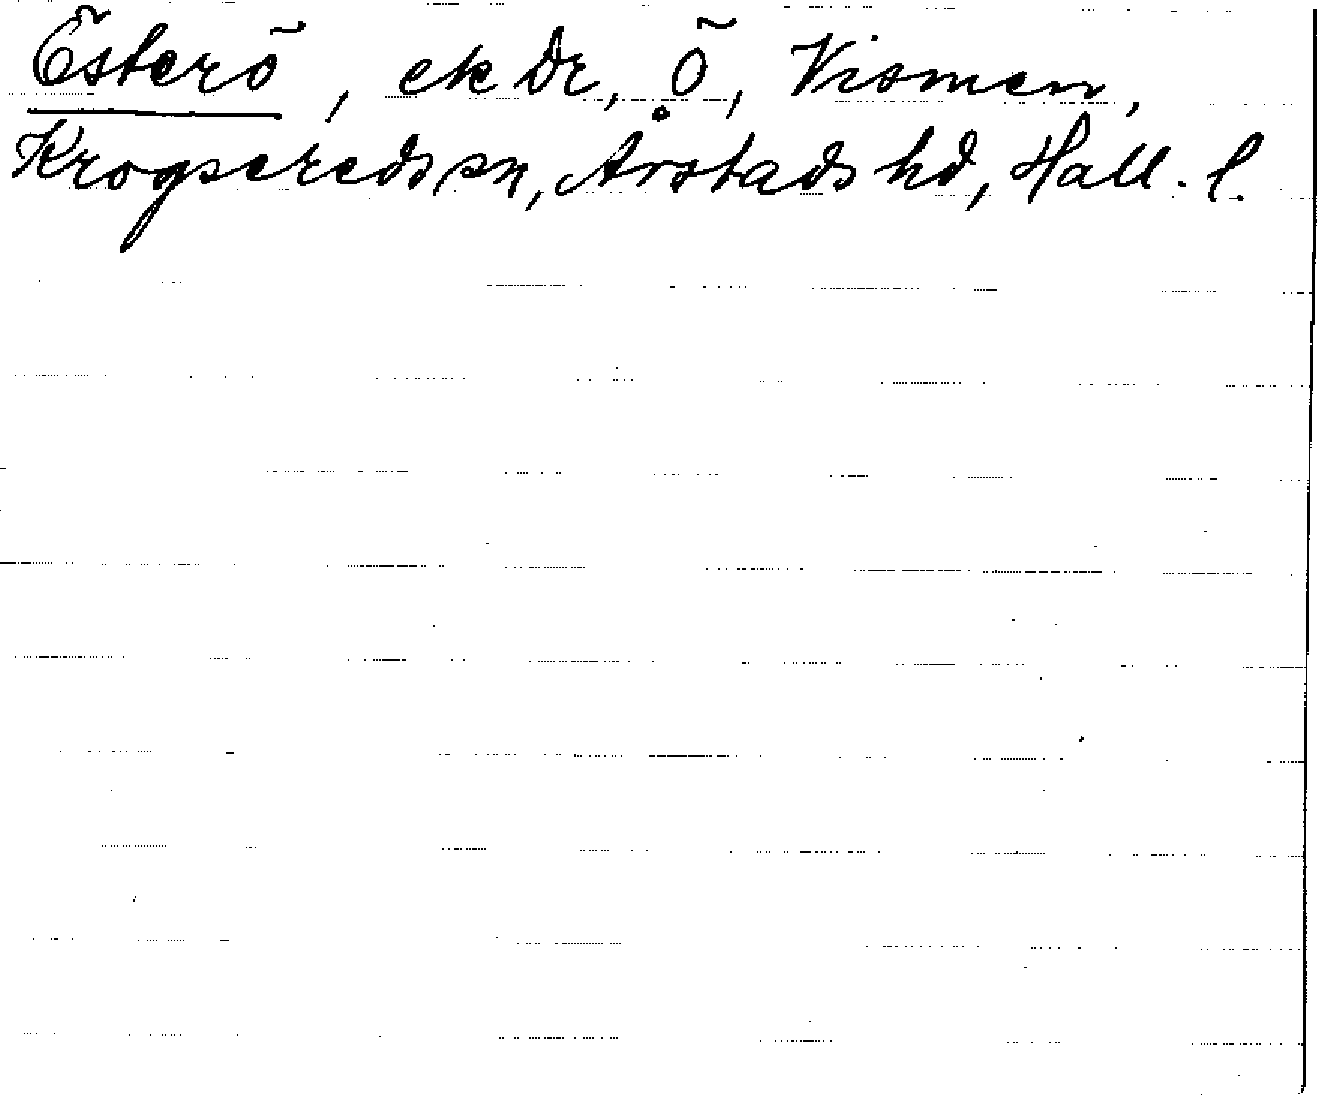 Österö, ek Dr, Ö, Vismen,
Krogsereds sn, Årstads hd, Hall. l.